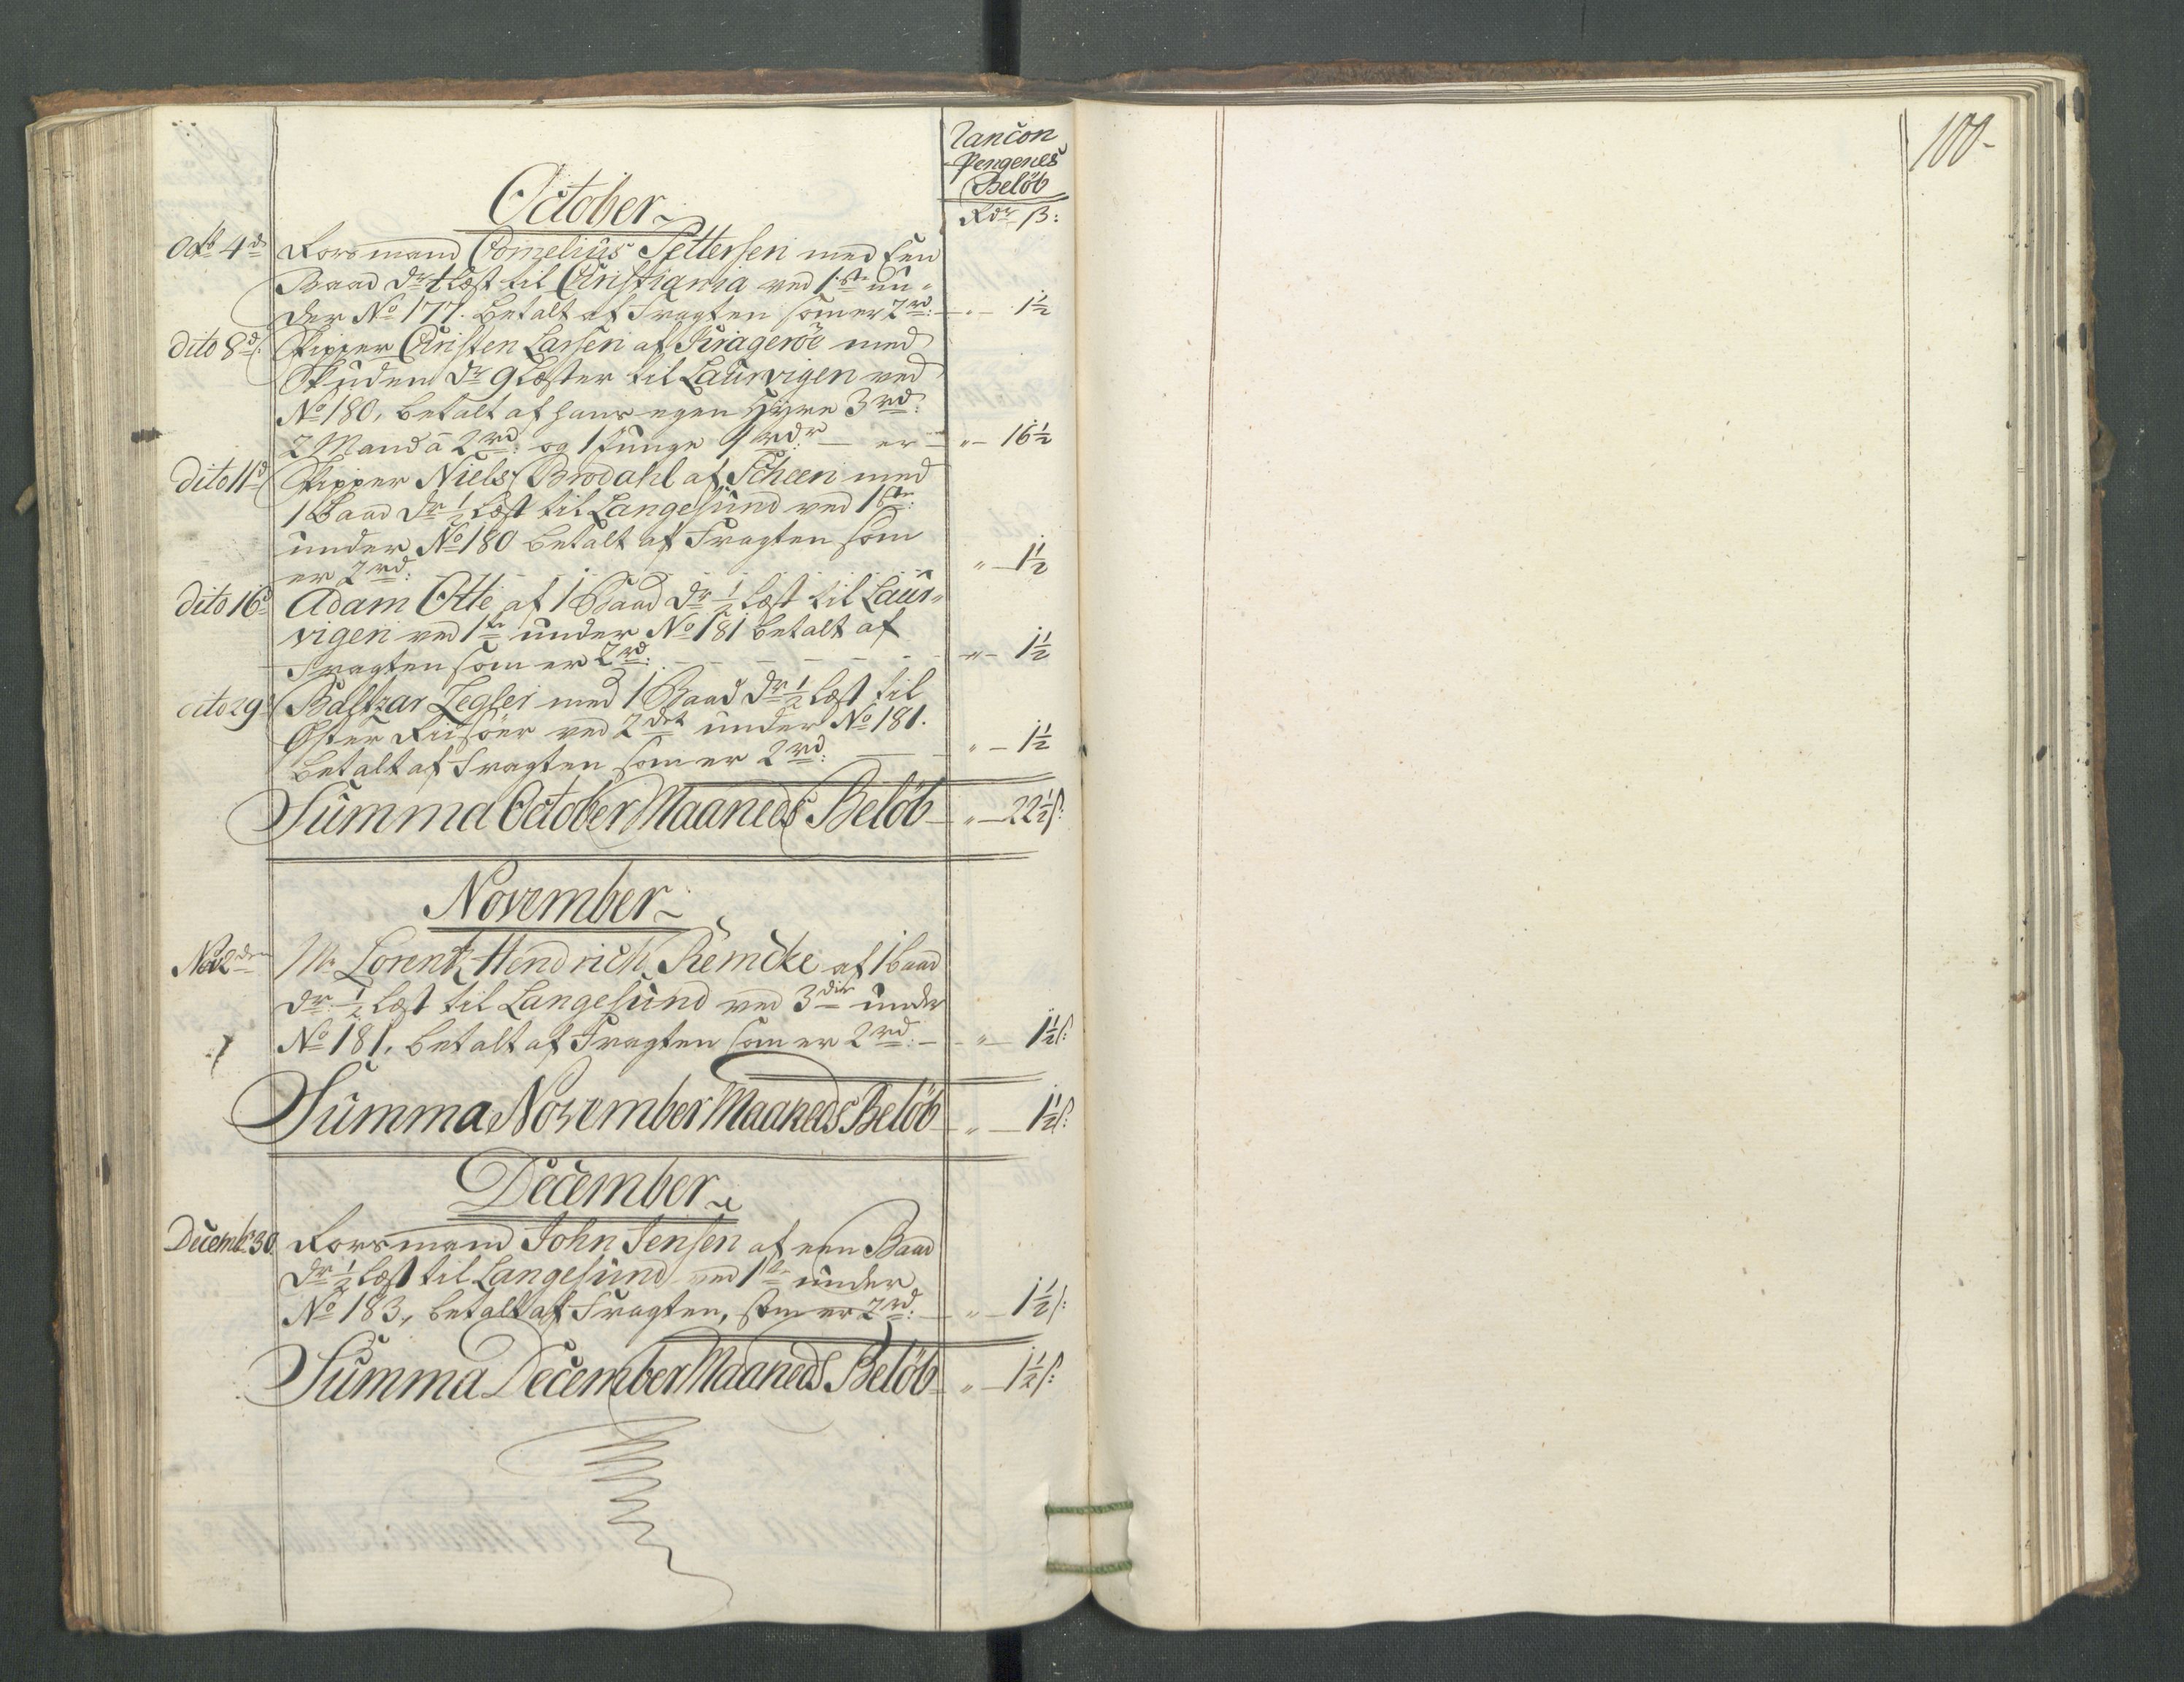 Rancon
Pengenes
Belöb
October
Rdr ß:
Octb 4de Rorsmand Cornelius Pettersen med Een
Baad dr 1 Læst til Christiania ved 1ste un-
der No 177. betalt af Fragten som er 2rd: „ 1½
dito 8de Skipper Christen Larsen af Krageröe med
Skuden dr 9 Læster til Laurvigen ved
No 180, betalt af hans egen Hyre 3rd:
2 Mand â 2rd: og 1 Junge 1 rdr er „ 16½
dito 11d Skipper Niels Brodahl af Scheen med
1 Baad dr ½ Læst til Langesund ved 1ste:
under No 180 betalt af Fragten som
er 2rd: „ 1½
dito 16d Adam Otte af 1 Baad dr ½ Læst til Laur-
vigen ved 1te under No 181 betalt af
Fragten som er 2rd: „ 1½
dito 29 Baltzar Zegler med 1 Baad dr ½ Læst til
Öster Riisöer ved 2det under No 181.
betalt af Fragten som er 2rd: „ 1½
Summa October Maaneds Belöb „ 22½ s:
November
Nov 2den Mr Lorentz Hendrich Remcke af 1 Baad
dr ½ Læst til Langesund ved 3die under
No 181, betalt af Fragten som er 2rd: „ 1½ s:
Summa November Maaneds Belöb „ 1½ s:
December
Decembr 30 Rorsmand John Jensen af een Baad
dr ½ Læst til Langesund ved 1ste under
No 183, betalt af Fragten, som er 2rd: „ 1½ s:
Summa December Maaneds Belöb „ 1½ s:
100-